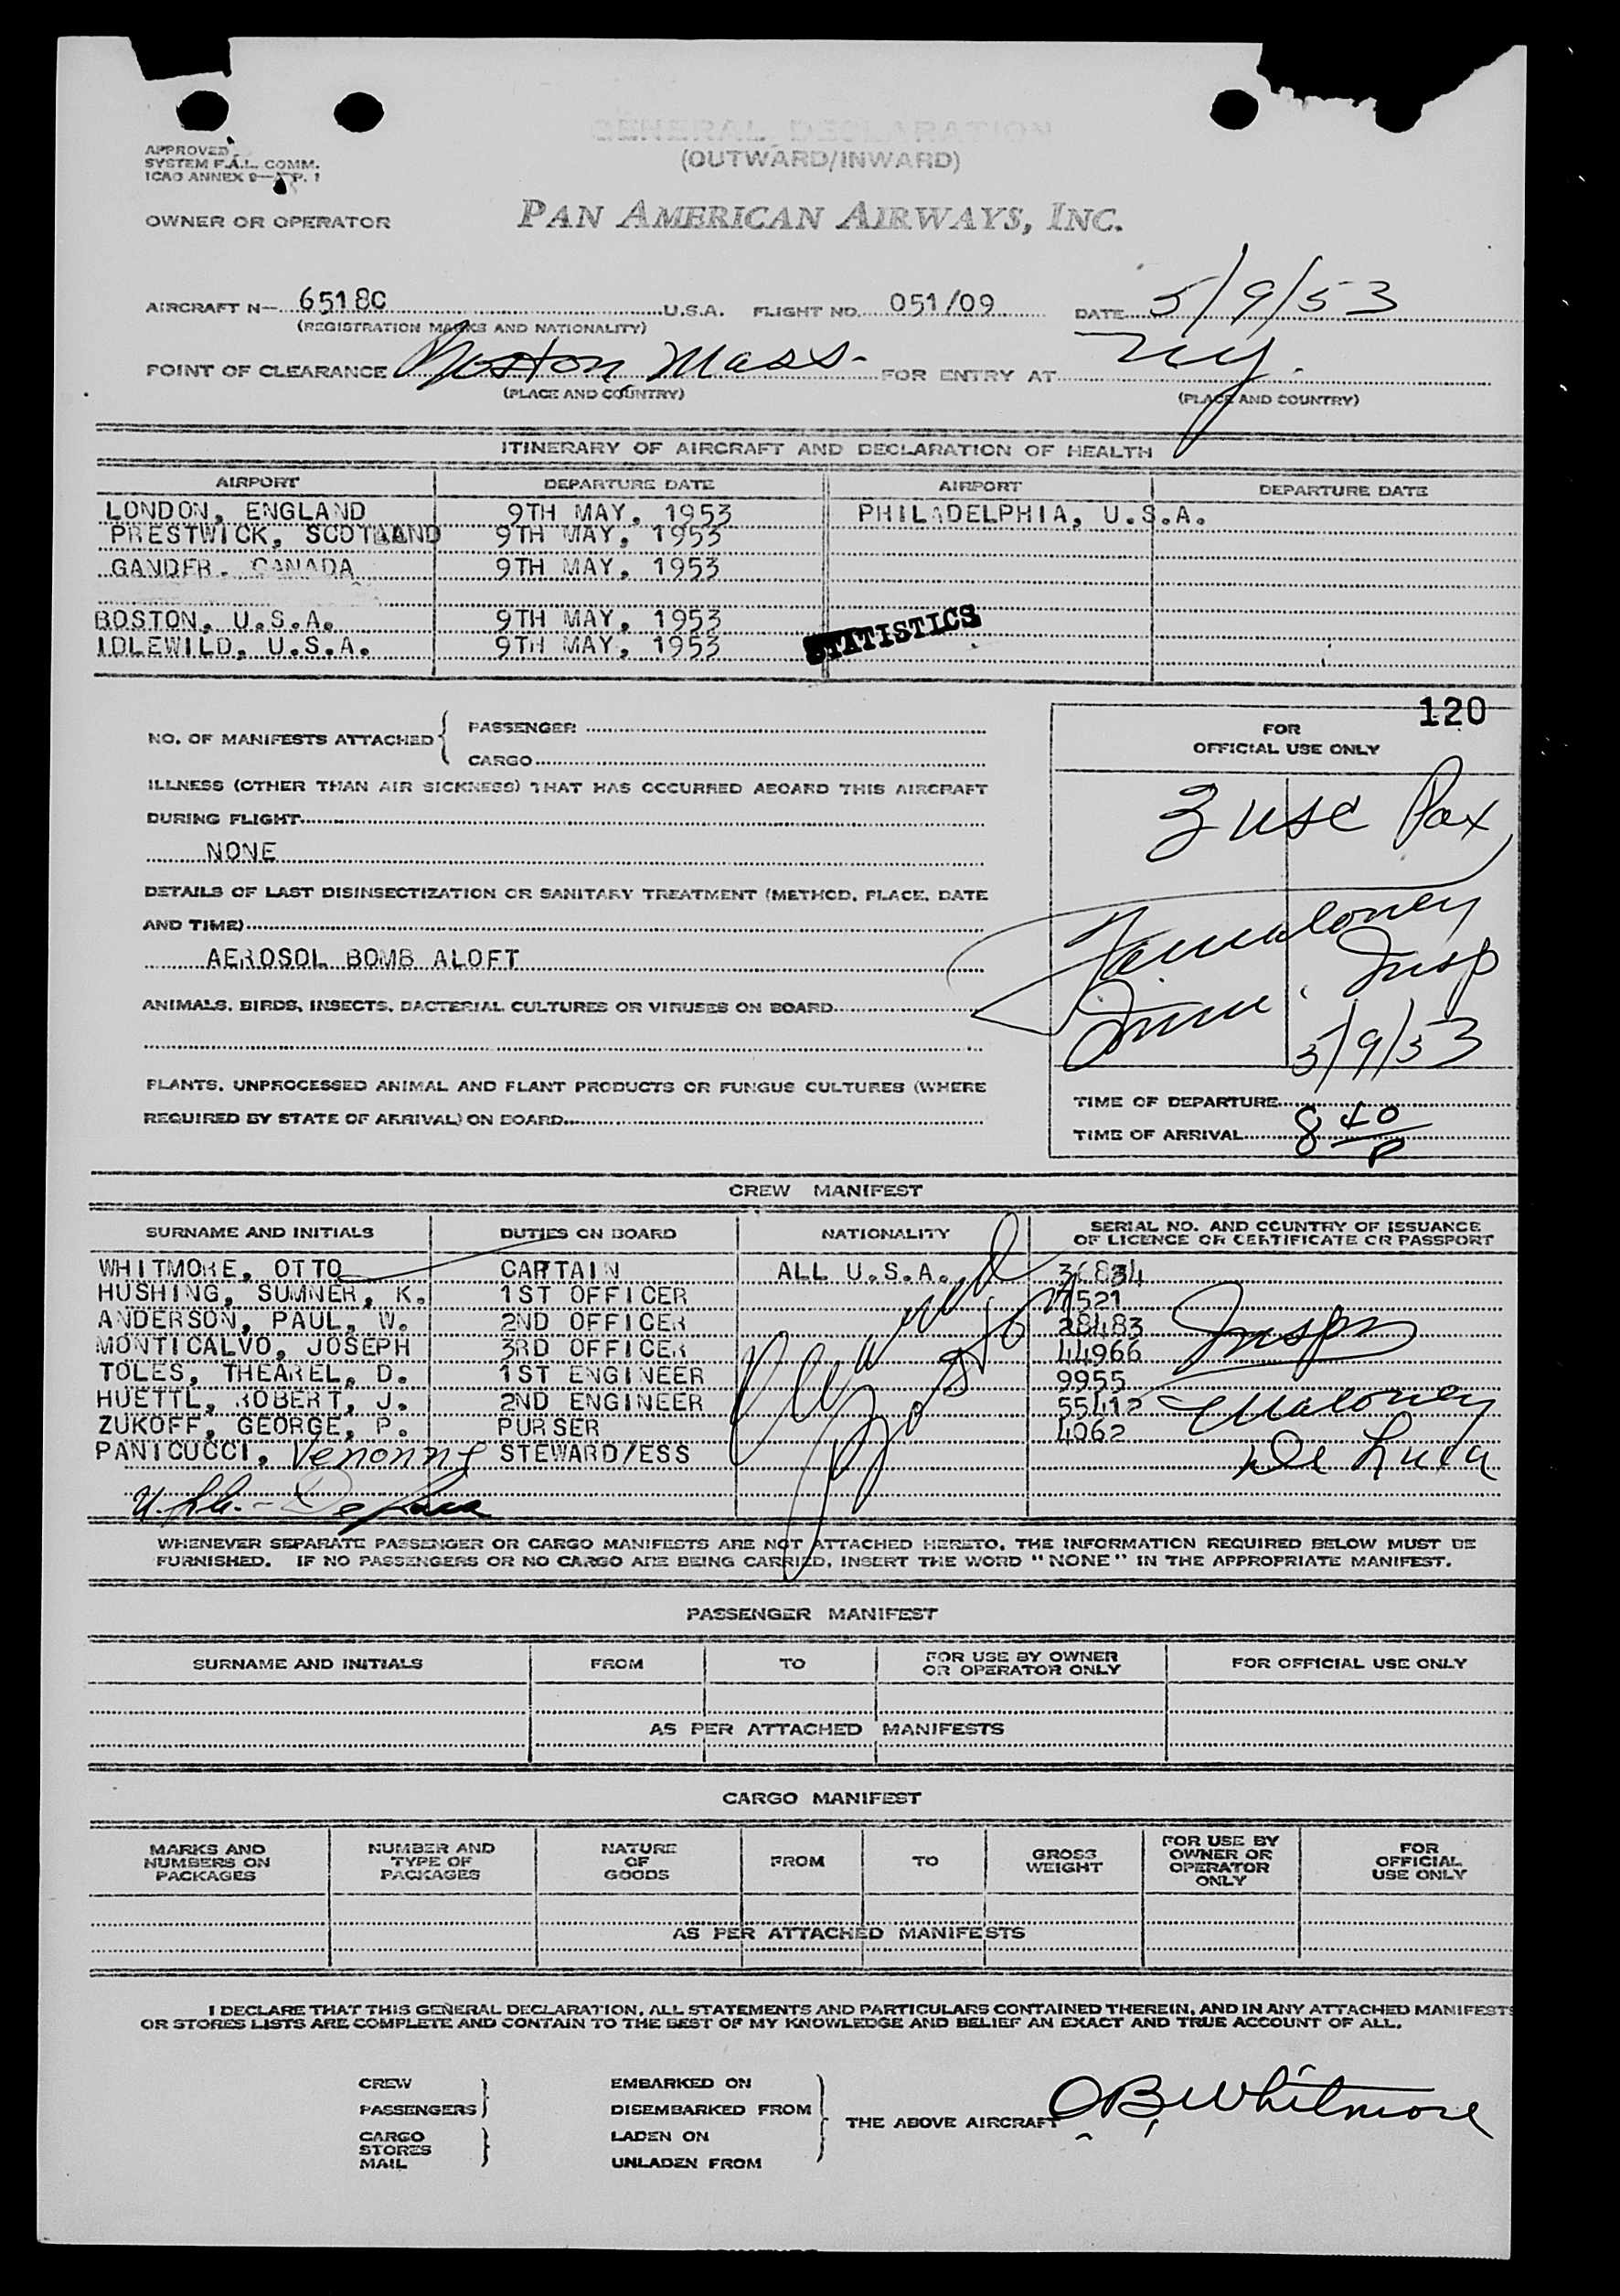 GENERAL DECLARATION
(OUTWARD/INWARD)
APPROVED
SYSTEM F.A.L. COMM.
ICAO ANNEX 9— P. 1
OWNER OR OPERATOR PAN AMERICAN AIRWAYS, INC.
AIRCRAFT N— 6518C U.S.A. FLIGHT NO. 051/09 DATE 5/9/53
(REGISTRATION MARKS AND NATIONALITY)
POINT OF CLEARANCE Boston Mass. FOR ENTRY AT NY.
(PLACE AND COUNTRY) (PLACE AND COUNTRY)
ITINERARY OF AIRCRAFT AND DECLARATION OF HEALTH
AIRPORT DEPARTURE DATE AIRPORT DEPARTURE DATE
LONDON, ENGLAND 9TH MAY, 1953 PHILADELPHIA, U.S.A.
PRESTWICK, SCOTLAND 9TH MAY, 1953
GANDER, CANADA 9TH MAY, 1953
BOSTON, U.S.A. 9TH MAY, 1953
IDLEWILD, U.S.A. 9TH MAY, 1953
STATISTICS
120
NO. OF MANIFESTS ATTACHED { PASSENGER
CARGO
FOR
OFFICIAL USE ONLY
ILLNESS (OTHER THAN AIR SICKNESS) THAT HAS OCCURRED ABOARD THIS AIRCRAFT
DURING FLIGHT
NONE
3 USC Pax
DETAILS OF LAST DISINSECTIZATION OR SANITARY TREATMENT (METHOD, PLACE, DATE
AND TIME)
AEROSOL BOMB ALOFT
Maloney
Imm. Insp
5/9/53
ANIMALS, BIRDS, INSECTS, BACTERIAL CULTURES OR VIRUSES ON BOARD
PLANTS, UNPROCESSED ANIMAL AND PLANT PRODUCTS OR FUNGUS CULTURES (WHERE
REQUIRED BY STATE OF ARRIVAL) ON BOARD
TIME OF DEPARTURE
TIME OF ARRIVAL 8 40 P
CREW MANIFEST
SURNAME AND INITIALS DUTIES ON BOARD NATIONALITY SERIAL NO. AND COUNTRY OF ISSUANCE
OF LICENCE OR CERTIFICATE OR PASSPORT
WHITMORE, OTTO CAPTAIN ALL U.S.A.
HUSHING, SUMNER, K. 1ST OFFICER 7521
ANDERSON, PAUL, W. 2ND OFFICER 28483
MONTICALVO, JOSEPH 3RD OFFICER 44966
TOLES, THEAREL, D. 1ST ENGINEER 9955
HUETTL, ROBERT, J. 2ND ENGINEER 55412
ZUKOFF, GEORGE, P. PURSER 4062
PANICUCCI, STEWARD/ESS
Boston
Insp
Maloney
De Luca
WHENEVER SEPARATE PASSENGER OR CARGO MANIFESTS ARE NOT ATTACHED HERETO, THE INFORMATION REQUIRED BELOW MUST BE
FURNISHED. IF NO PASSENGERS OR NO CARGO ARE BEING CARRIED, INSERT THE WORD "NONE" IN THE APPROPRIATE MANIFEST.
PASSENGER MANIFEST
SURNAME AND INITIALS FROM TO FOR USE BY OWNER OR OPERATOR ONLY FOR OFFICIAL USE ONLY
AS PER ATTACHED MANIFESTS
CARGO MANIFEST
MARKS AND NUMBERS ON PACKAGES NUMBER AND TYPE OF PACKAGES NATURE OF GOODS FROM TO GROSS WEIGHT FOR USE BY OWNER OR OPERATOR ONLY FOR OFFICIAL USE ONLY
AS PER ATTACHED MANIFESTS
I DECLARE THAT THIS GENERAL DECLARATION, ALL STATEMENTS AND PARTICULARS CONTAINED THEREIN, AND IN ANY ATTACHED MANIFESTS
OR STORES LISTS ARE COMPLETE AND CONTAIN TO THE BEST OF MY KNOWLEDGE AND BELIEF AN EXACT AND TRUE ACCOUNT OF ALL.
CREW EMBARKED ON
PASSENGERS DISEMBARKED FROM
THE ABOVE AIRCRAFT OB Whitmore
CARGO LADEN ON
STORES
MAIL UNLADEN FROM